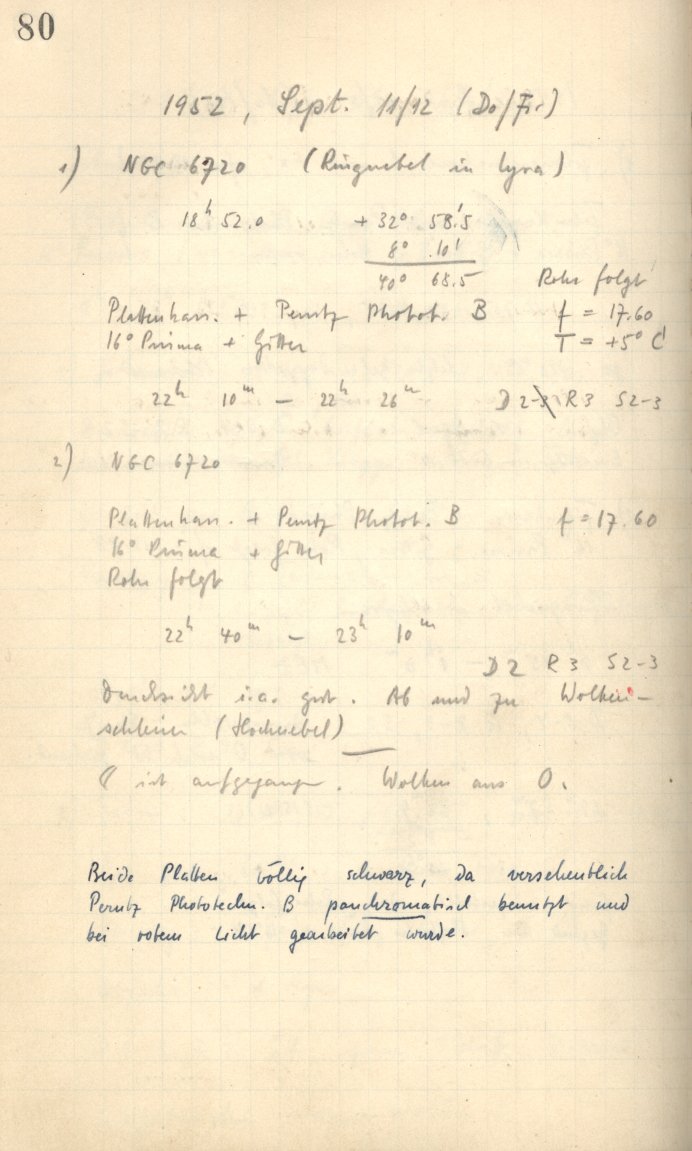 80
1952, Sept. 11/12 (Do/Fr.)
1) NGC 6720 (Ringnebel in Lyra)
18h 52.0 + 32° 58.'5
8° 10'
40° 68.5 Rohr folgt
Plattenhan. + Perutz Photot. B f = 17.60
16° Prisma + Gitter T = +5° C
22h 10m – 22h 26m D 2-3 R 3 S2-3
2) NGC 6720
Plattenhan. + Perutz Photot. B f = 17.60
16° Prisma + Gitter
Rohr folgt
22h 40m – 23h 10m
D 2 R 3 S2-3
Durchsicht i.a. gut. Ab und zu Wolken-
schleier (Hochnebel)
☾ ist aufgegangen. Wolken aus O.
Beide Platten völlig schwarz, da versehentlich
Perutz Phototechn. B panchromatisch benutzt und
bei rotem Licht gearbeitet wurde.